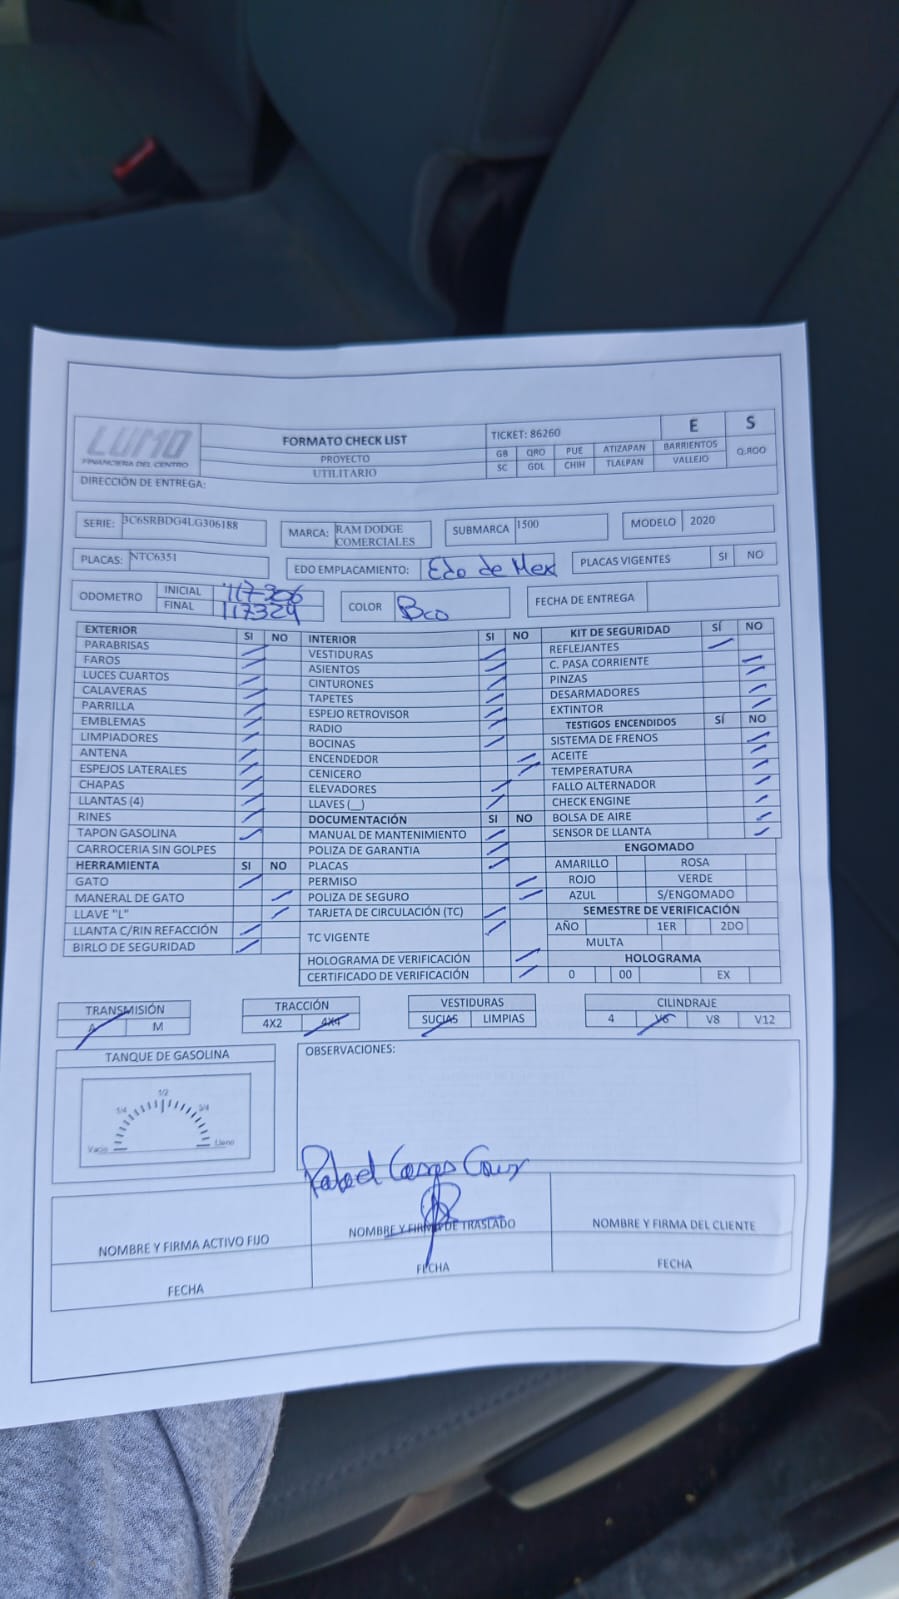 LUMO
FINANCIERA DEL CENTRO
FORMATO CHECK LIST
PROYECTO
UTILITARIO
TICKET: 86260
E S
GB QRO PUE ATIZAPAN BARRIENTOS Q.ROO
SC GDL CHIH TLALPAN VALLEJO
DIRECCIÓN DE ENTREGA:
SERIE: 3C6SRBDG4LG306188
MARCA: RAM DODGE
COMERCIALES
SUBMARCA 1500
MODELO 2020
PLACAS: NTC6351
EDO EMPLACAMIENTO: Edo de Mex
PLACAS VIGENTES SI NO
ODOMETRO
INICIAL 117-306
FINAL 117329
COLOR Bco
FECHA DE ENTREGA
EXTERIOR SI NO
PARABRISAS
FAROS
LUCES CUARTOS
CALAVERAS
PARRILLA
EMBLEMAS
LIMPIADORES
ANTENA
ESPEJOS LATERALES
CHAPAS
LLANTAS (4)
RINES
TAPON GASOLINA
CARROCERIA SIN GOLPES
HERRAMIENTA SI NO
GATO
MANERAL DE GATO
LLAVE "L"
LLANTA C/RIN REFACCIÓN
BIRLO DE SEGURIDAD
INTERIOR SI NO
VESTIDURAS
ASIENTOS
CINTURONES
TAPETES
ESPEJO RETROVISOR
RADIO
BOCINAS
ENCENDEDOR
CENICERO
ELEVADORES
LLAVES (__)
DOCUMENTACIÓN SI NO
MANUAL DE MANTENIMIENTO
POLIZA DE GARANTIA
PLACAS
PERMISO
POLIZA DE SEGURO
TARJETA DE CIRCULACIÓN (TC)
TC VIGENTE
HOLOGRAMA DE VERIFICACIÓN
CERTIFICADO DE VERIFICACIÓN
KIT DE SEGURIDAD SÍ NO
REFLEJANTES
C. PASA CORRIENTE
PINZAS
DESARMADORES
EXTINTOR
TESTIGOS ENCENDIDOS SÍ NO
SISTEMA DE FRENOS
ACEITE
TEMPERATURA
FALLO ALTERNADOR
CHECK ENGINE
BOLSA DE AIRE
SENSOR DE LLANTA
ENGOMADO
AMARILLO ROSA
ROJO VERDE
AZUL S/ENGOMADO
SEMESTRE DE VERIFICACIÓN
AÑO 1ER 2DO
MULTA
HOLOGRAMA
0 00 EX
TRANSMISIÓN
A M
TRACCIÓN
4X2 4X4
VESTIDURAS
SUCIAS LIMPIAS
CILINDRAJE
4 V6 V8 V12
TANQUE DE GASOLINA
Vacio 1/4 1/2 3/4 Lleno
OBSERVACIONES:
NOMBRE Y FIRMA ACTIVO FIJO
FECHA
NOMBRE Y FIRMA DE TRASLADO
FECHA
NOMBRE Y FIRMA DEL CLIENTE
FECHA